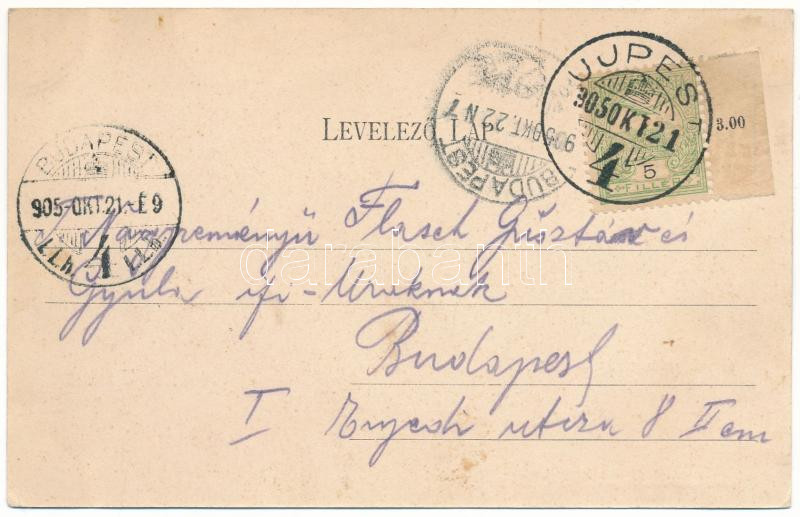 LEVELEZŐ LAP
UJPEST
905 OKT 21
4
5
FILLÉR
3.00
BUDAPEST
905 OKT. 22 N 7
BUDAPEST
905-OKT. 21.-É 9
4
darabanth
Flesch Gusztáv és
Gyula ifj-Uraknak
Budapest
I utcza 8 II em